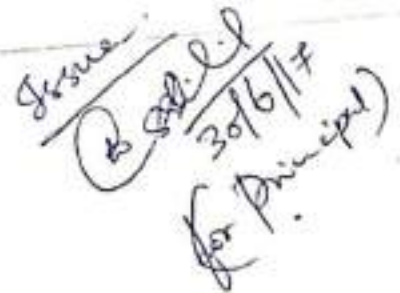 Issue.
30/6/17
(for Principal)